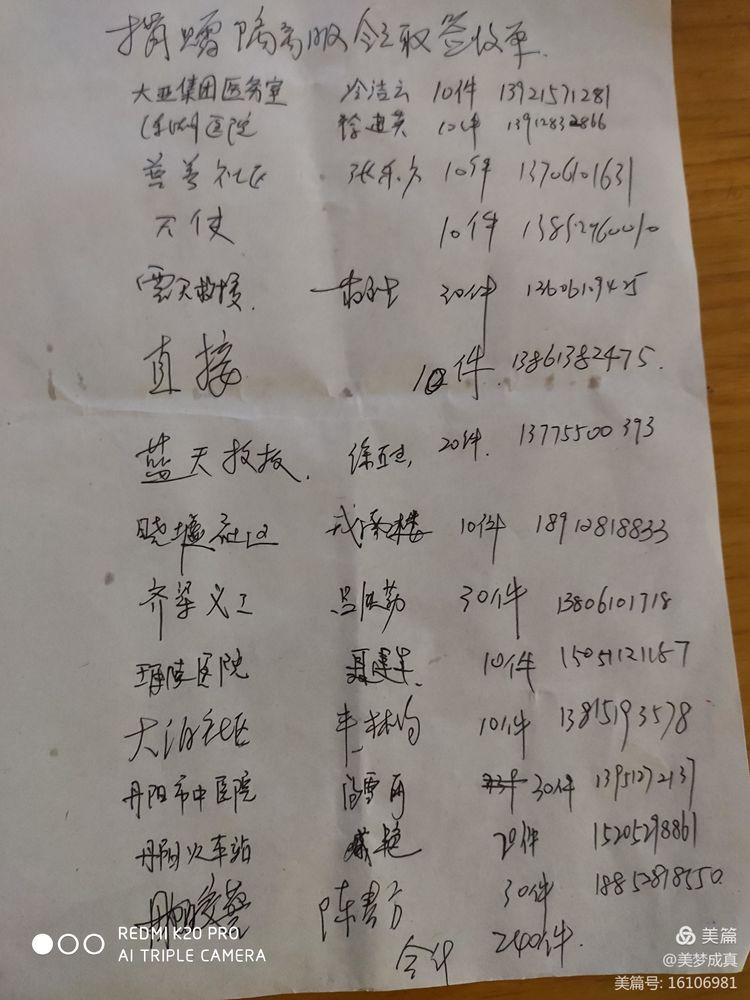 捐赠隔离服领取签收单
大亚集团医务室 冷洁云 10件 13921571281
医院 徐建英 10件 13912832866
慈善社区 张 10件 13706101631
天使 10件 13852960010
云天救援 30件
直接 10件 13861382475.
蓝天救援. 20件. 13775500393
晓墟社区 戎南楼 10件 18912818833
齐梁义工 吕 30件 13806101718
珥陵医院 聂建生 10件
大泊社区 10件 13815193578
丹阳市中医院 30件 13951272137
丹阳火车站 臧艳 20件 15205298861
丹阳交警 陈 30件 18852818550.
合计 240件.
REDMI K20 PRO
AI TRIPLE CAMERA
美篇
@美梦成真
美篇号: 16106981